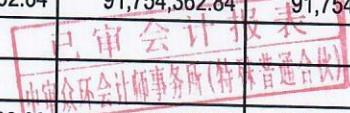 2.84 91,754,362.84 91,754
已审会计报表
中审众环会计师事务所(特殊普通合伙)